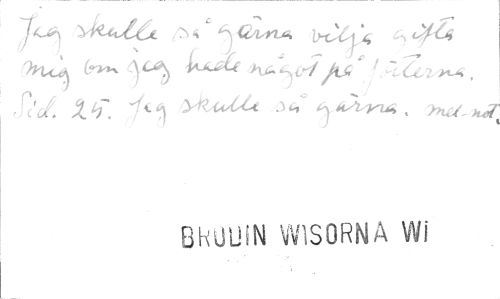 Jag skulle så gärna vilja gifta
mig om jag hade något på fötterna.
Sid. 25. Jag skulle så gärna. mel-not.
BRODIN WISORNA Wi